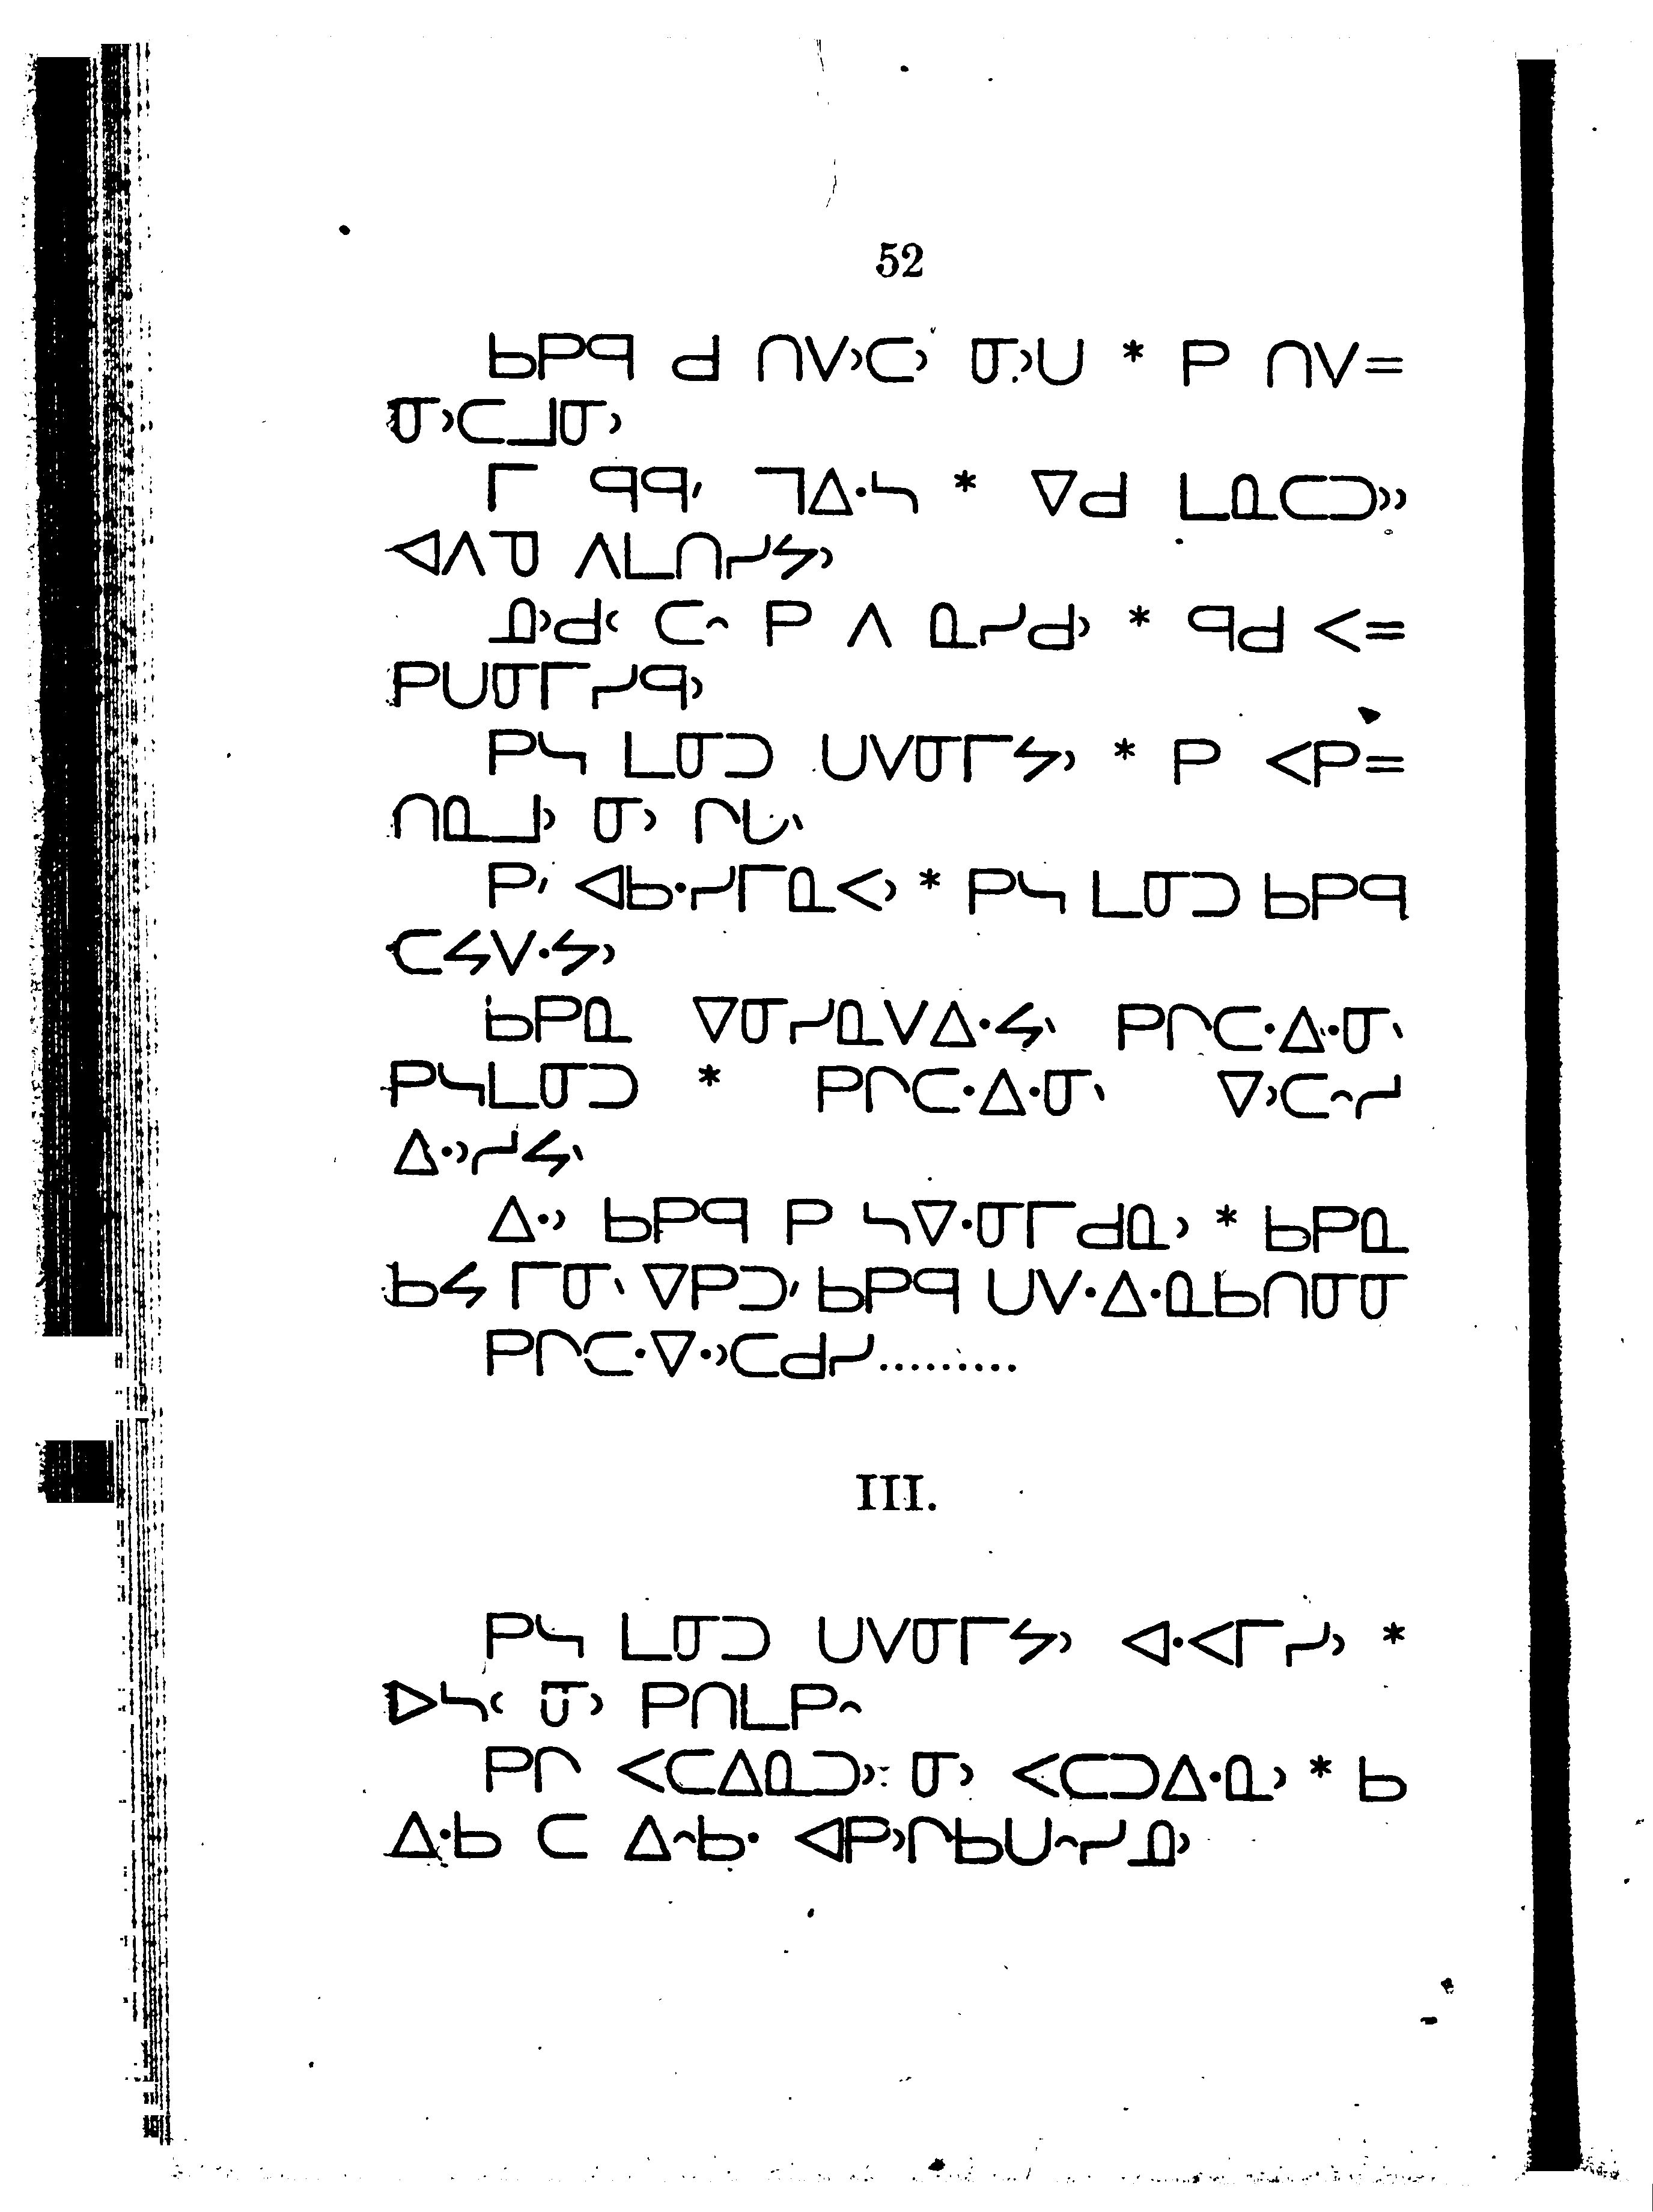 52
ᑲᑭᑫ ᑯ ᑎᐯᐣᑕᐣ ᓂᐣᑌ * ᑭ ᑎᐯ=
ᓂᐣᑕᒧᓂᐣ
ᒥ ᑫᑫᐟ ᒣᐃᐧᓴ * ᐁᑯ ᒪᓇᑕᑐᐣᐣ
ᐊᐱᓀ ᐱᒪᑎᓯᔭᐣ
ᓄᐣᑯᑊ ᑕᐢ ᑭ ᐱ ᓇᓯᑯᐣ * ᑫᑯ ᐸ=
ᑭᑌᓂᒥᓯᑫᐣ
ᑭᓴ ᒪᓂᑐ ᑌᐯᓂᒥᔭᐣ * ᑭ ᐸᑭ=
ᑎᓇᒧᐣ ᓂᐣ ᒋᒐᐠ
ᑭᐟ ᐊᑲᐧᓯᒥᓇᐸᐣ * ᑭᓴ ᒪᓂᑐ ᑲᑭᑫ
ᑕᔦᐯᐧᔭᐣ
ᑲᑭᓇ ᐁᓂᓯᓇᐯᐃᐧᔦᐠ ᑭᒋᑕᐧᐃᐧᓂᐠ
ᑭᓴᒪᓂᑐ * ᑭᒋᑕᐧᐃᐧᓂᐠ ᐁᐣᑕᐢᓯ
ᐃᐧᐣᓯᔦᐠ
ᐃᐧᐣ ᑲᑭᑫ ᑭ ᓴᐁᐧᓂᒥᑯᓇᐣ * ᑲᑭᓇ
ᑲᔦ ᒥᓂᐠ ᐁᑭᑐᐟ ᑲᑭᑫ ᑌᐯᐧᐃᐧᓇᑲᑎᓂᓂ
ᑭᒋᑕᐧᐁᐧᐣᑕᑯᓯ.........
III.
ᑭᓴ ᒪᓂᑐ ᑌᐯᓂᒥᔭᐣ ᐊᐧᐸᒥᓯᐣ *
ᐅᓴᑊ ᓂᐣ ᑭᑎᒪᑭᐢ
ᑭᒋ ᐸᑕᐃᓇᑐᐣ ᓂᐣ ᐸᑕᑐᐃᐧᓇᐣ * ᑲ
ᐃᐧᑲ ᑕ ᐃᐢᑲᐧ ᐊᑭᐣᒋᑲᑌᐢᓯᓄᐣ